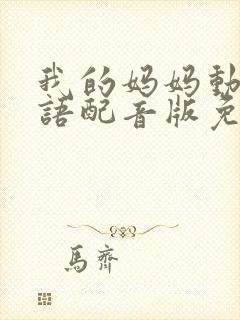 我的妈妈動
語配音版免
馬齊